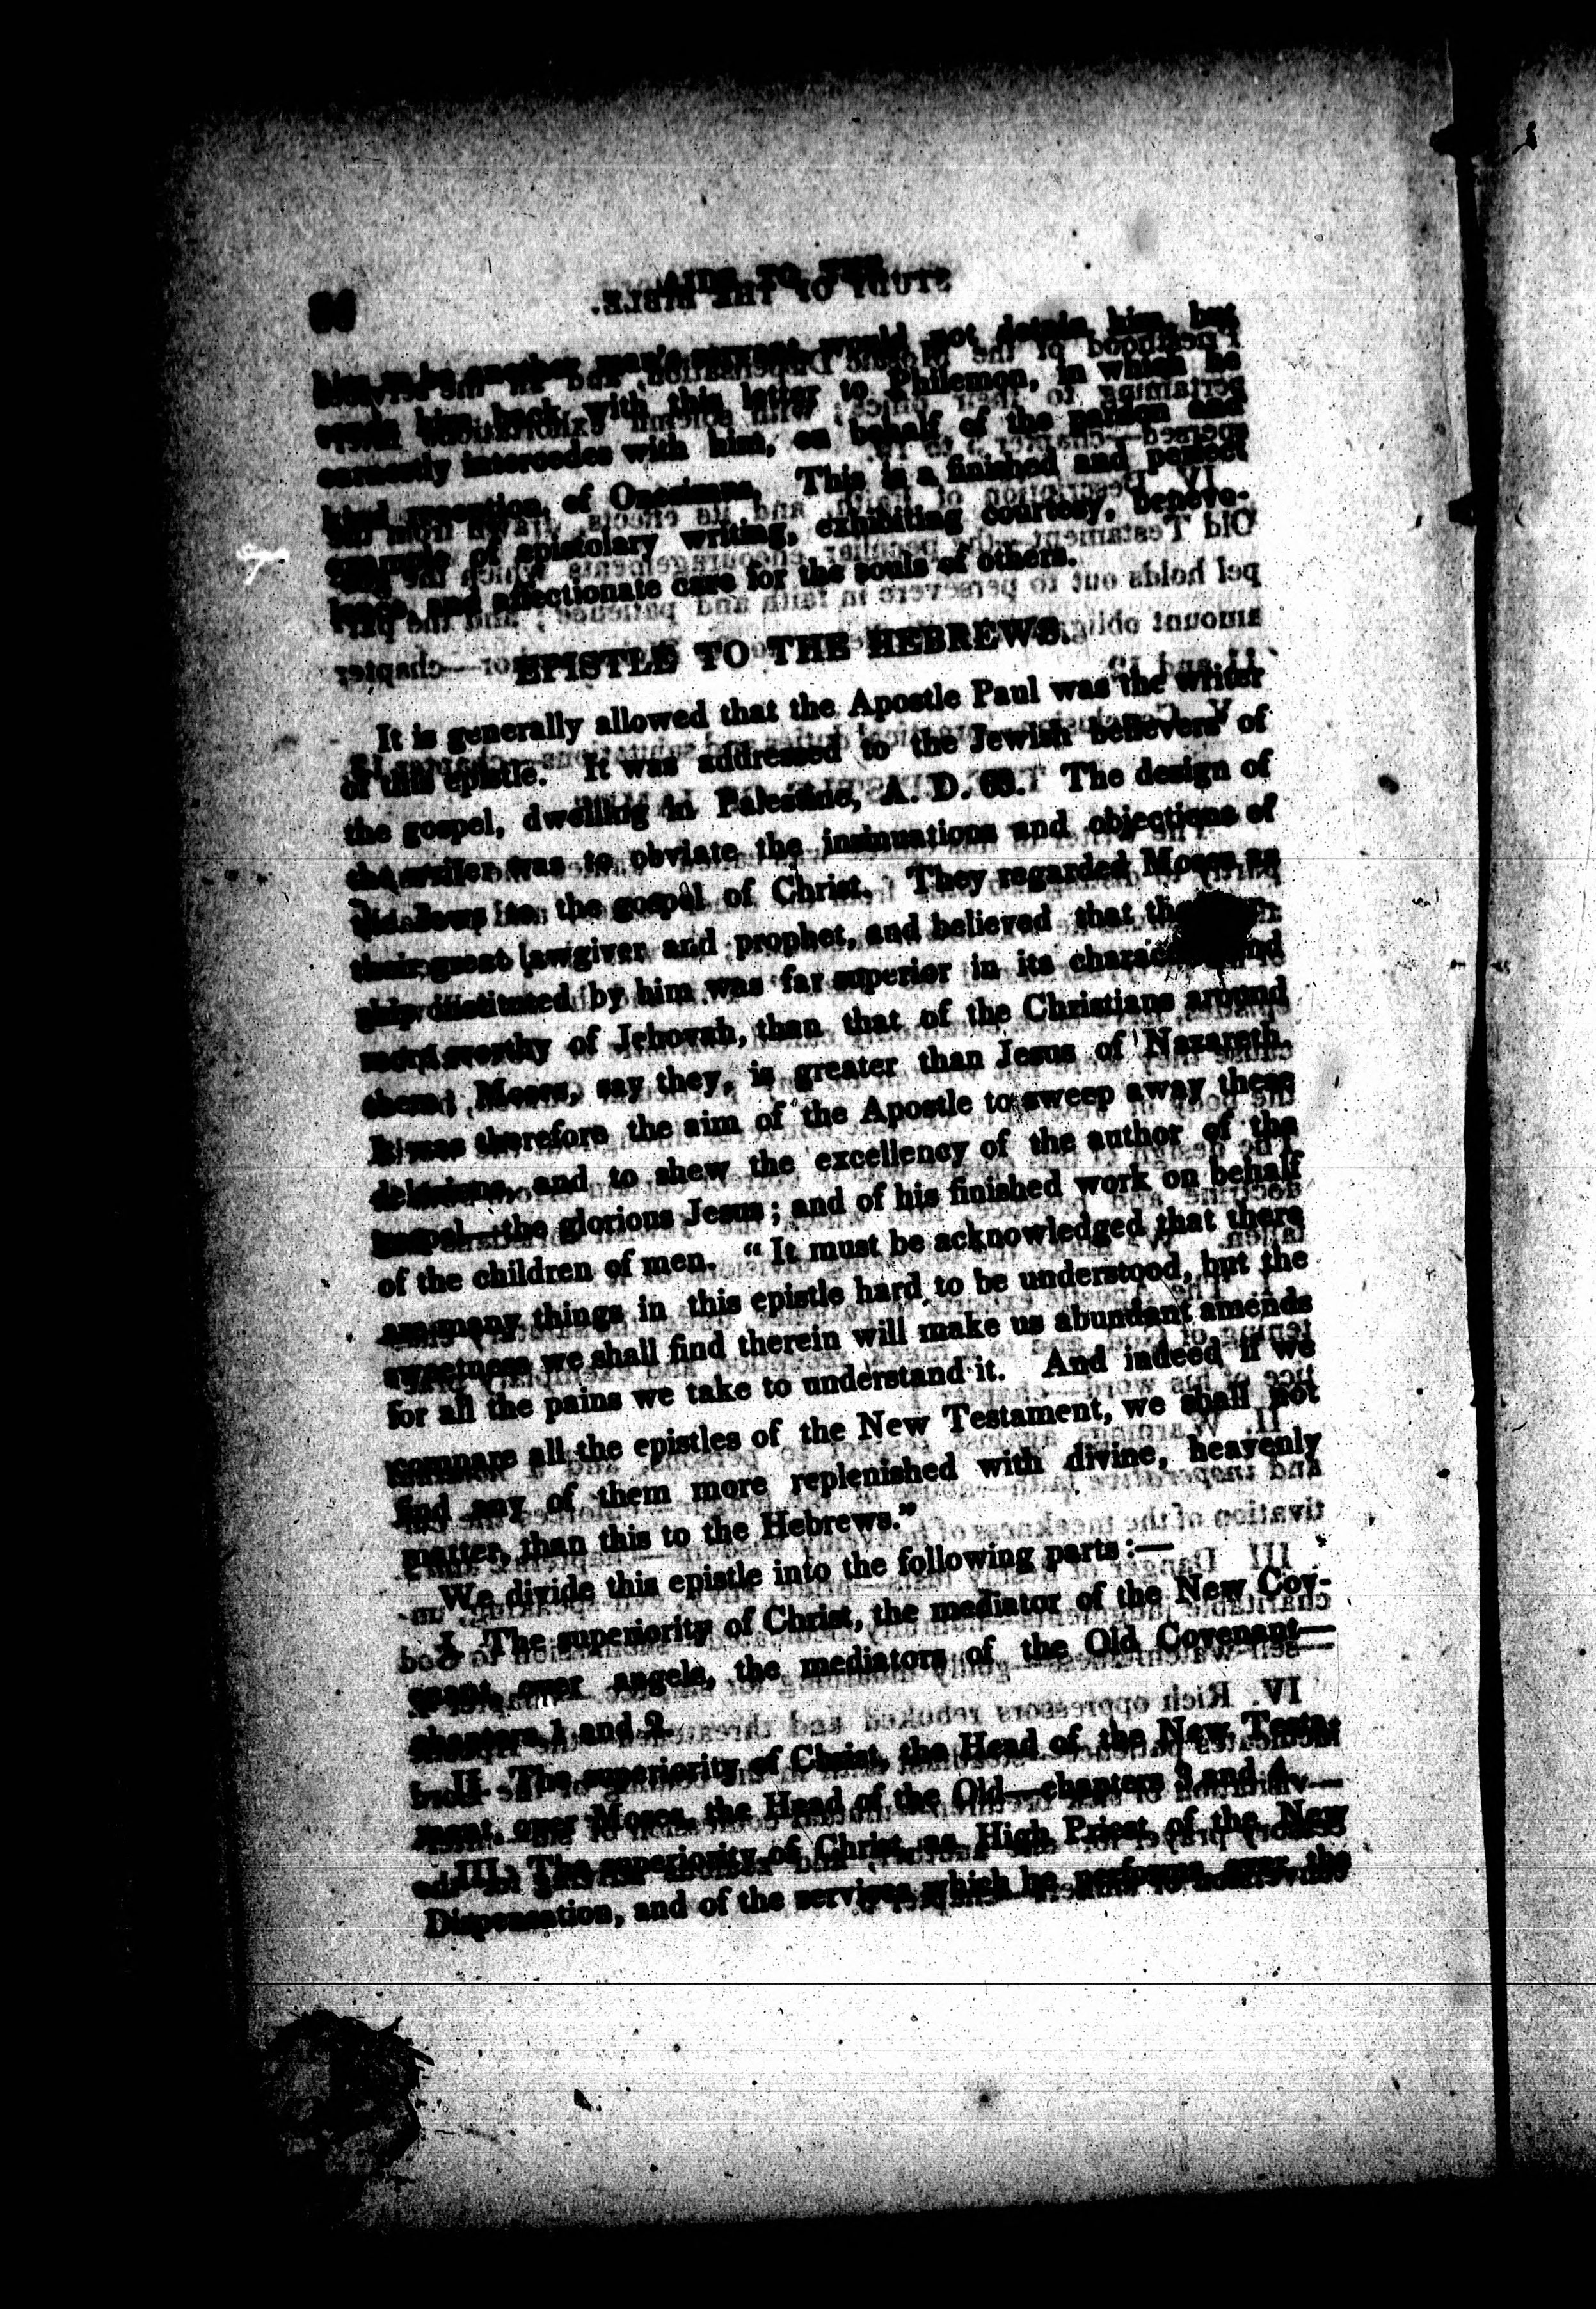 AIDS TO THE
him to be another man's servant, would not detain him, but
sends him back with this letter to Philemon, in which he
earnestly intercedes with him, on behalf of the pardon and
kind reception, of Onesimus. This is a finished and perfect
example of epistolary writing, exhibiting courtesy, benevo-
lence, and affectionate care for the souls of others.
EPISTLE TO THE HEBREWS.
It is generally allowed that the Apostle Paul was the writer
of this epistle. It was addressed to the Jewish believers of
the gospel, dwelling in Palestine, A. D. The design of
the writer was to obviate the insinuations and objections of
Jews to the gospel of Christ. They regarded Moses as
their great lawgiver and prophet, and believed that the
ship instituted by him was far superior in its character and
worthy of Jehovah, than that of the Christians around
them; Moses, say they, is greater than Jesus of Nazareth.
It was therefore the aim of the Apostle to sweep away these
delusions, and to shew the excellency of the author of the
gospel—the glorious Jesus; and of his finished work on behalf
of the children of men. “It must be acknowledged that there
are many things in this epistle hard to be understood, but the
sweetness we shall find therein will make us abundant amends
for all the pains we take to understand it. And indeed if we
compare all the epistles of the New Testament, we shall not
find any of them more replenished with divine, heavenly
matter, than this to the Hebrews.”
We divide this epistle into the following parts:—
I. The superiority of Christ, the mediator of the New Cov-
enant over angels, the mediators of the Old Covenant—
chapters 1 and 2.
II. The superiority of Christ, the Head of the New Testa-
ment, over Moses, the Head of the Old—chapters 3 and 4.
III. The superiority of Christ as High Priest of the New
Dispensation, and of the services which he performs over the